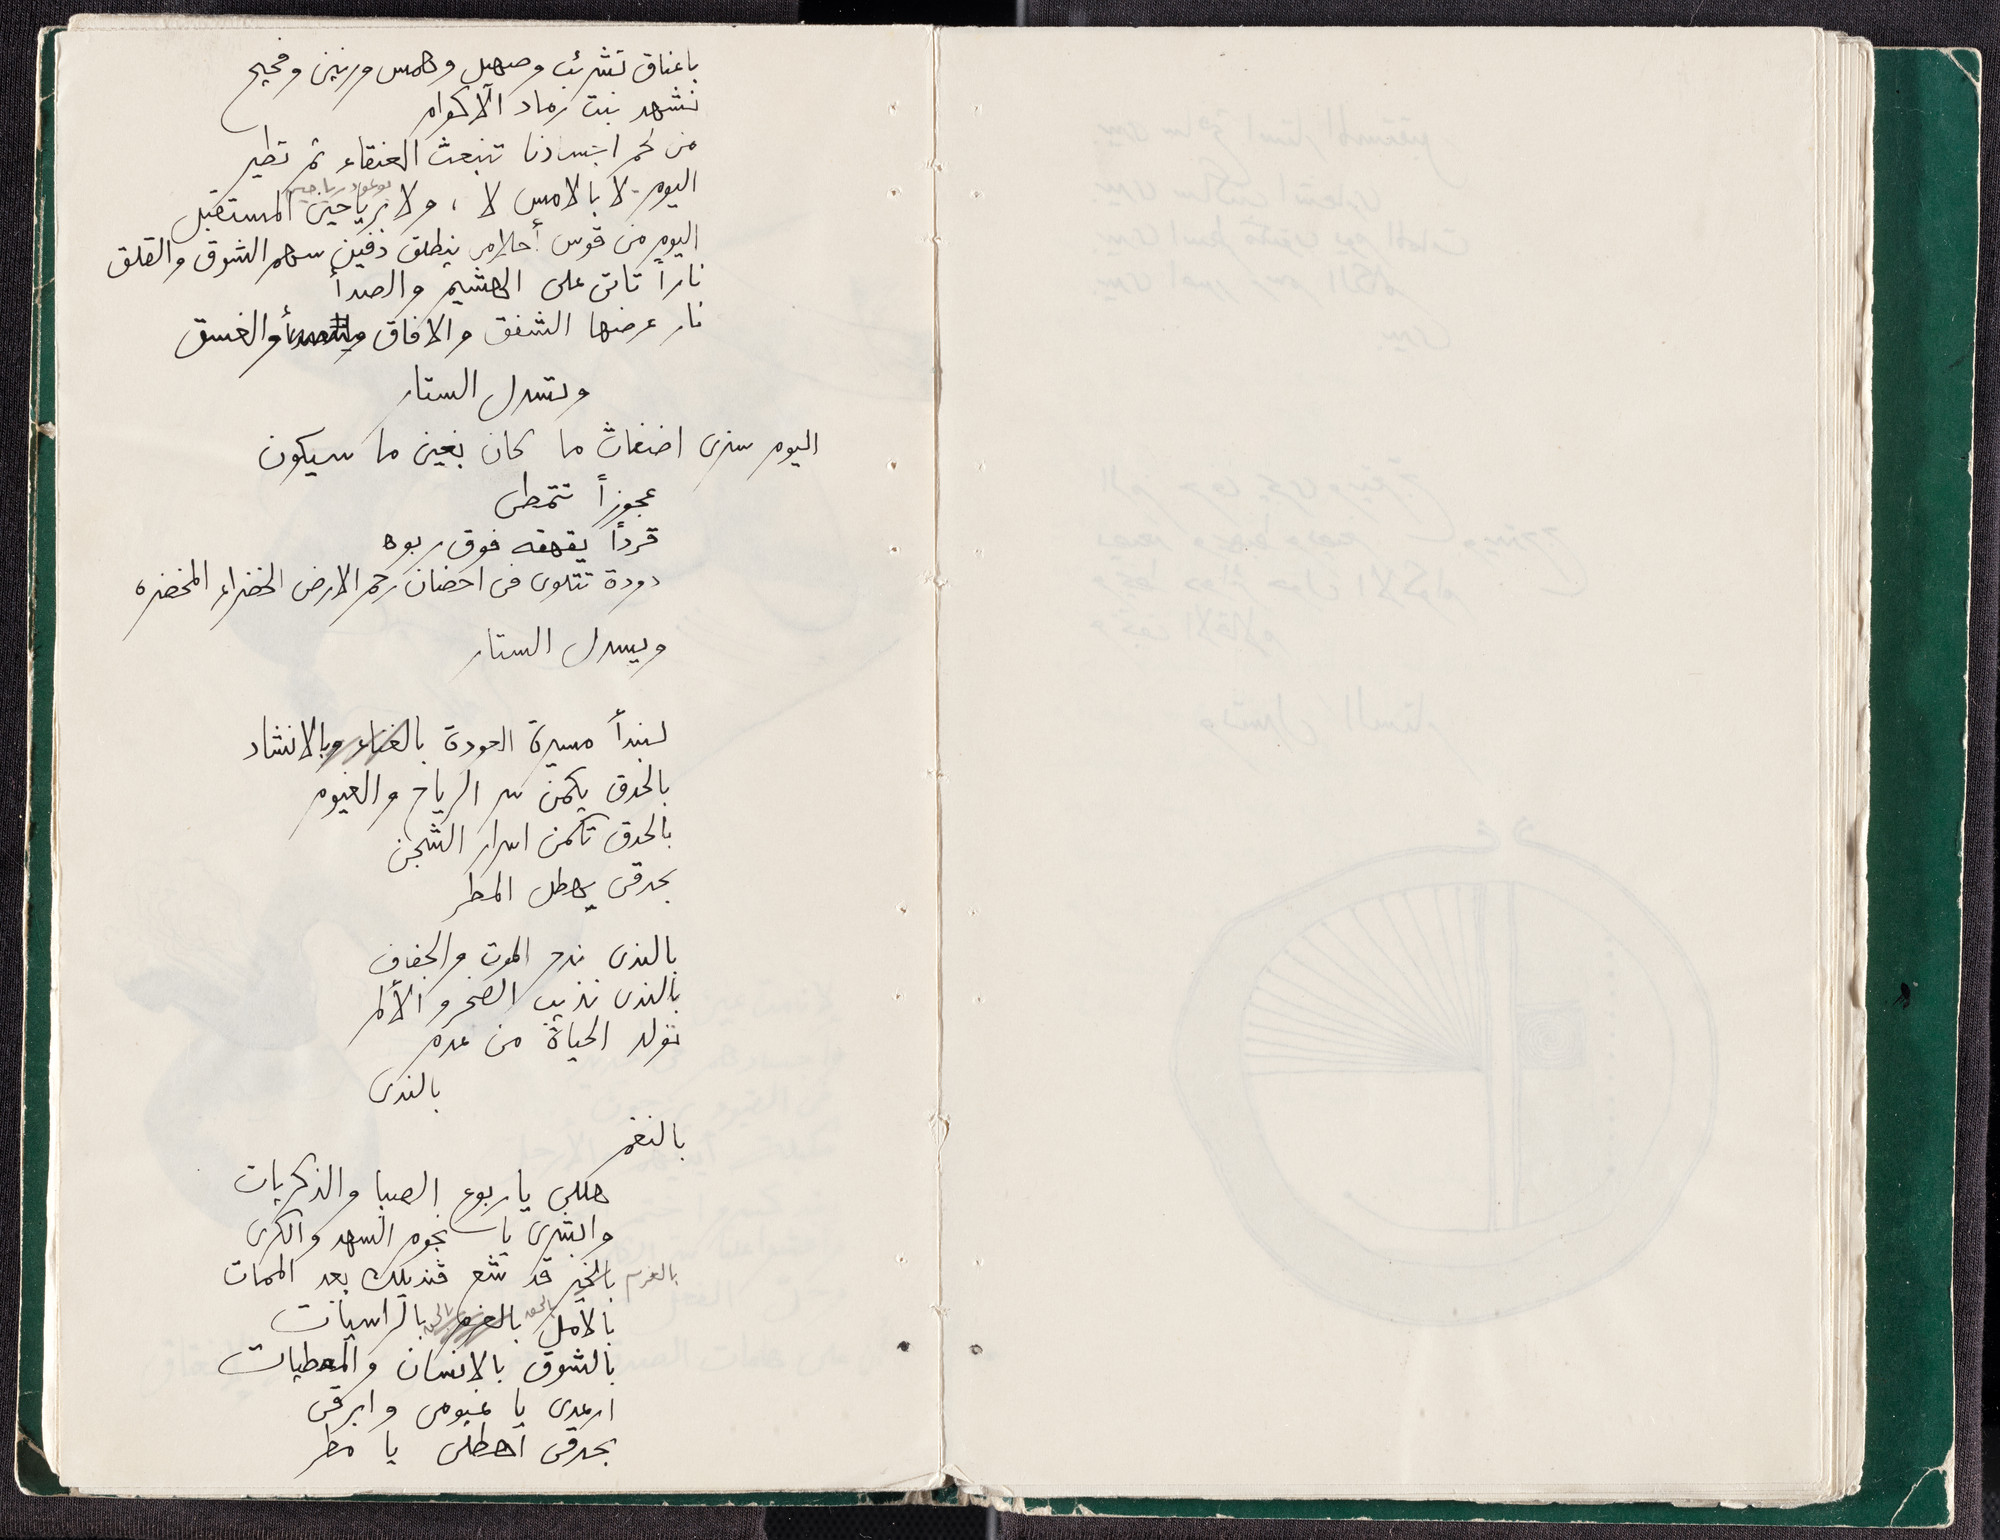 باعناق تشرئب وصهيل وهمس ورنين وفحيح
نشهد نبت رماد الاكوام
من لحم اجسادنا تنبعث العنقاء ثم تطير
اليوم لا بالامس لا ، ولا برياحين المستقبل
اليوم من قوس أحلام ينطلق دفين سهم الشوق والقلق
ناراً تاتى على الهشيم والصدأ
نار عرضها الشفق والافاق والغسق
وتسدل الستار
اليوم سنرى اضغاث ما كان بعين ما سيكون
عجوزاً تتمطى
قرداً يقهقه فوق ربوه
دودة تتلوى فى احضان رحم الارض الخضراء المخضره
ويسدل الستار
لنبدأ مسيرة العودة بالغناء وبالانشاد
بالحدق يكمن سر الرياح والغيوم
بالحدق تكمن اسرار الشجن
بحدقى يهطل المطر
بالندى ندحر الموت والجفاف
بالندى نذيب الصخر والألم
تولد الحياة من عدم
بالندى
بالنغم
هللى يا ربوع الصبا والذكريات
وابشرى يا نجوم السهد والكرى
بالعزم بالخير قد شع قنديلك بعد الممات
بالأمل بالعزم بالراسيات
بالشوق بالانسان والمعطيات
ارعدى يا غيومى وابرقى
بحدقى اهطلى يا مطر